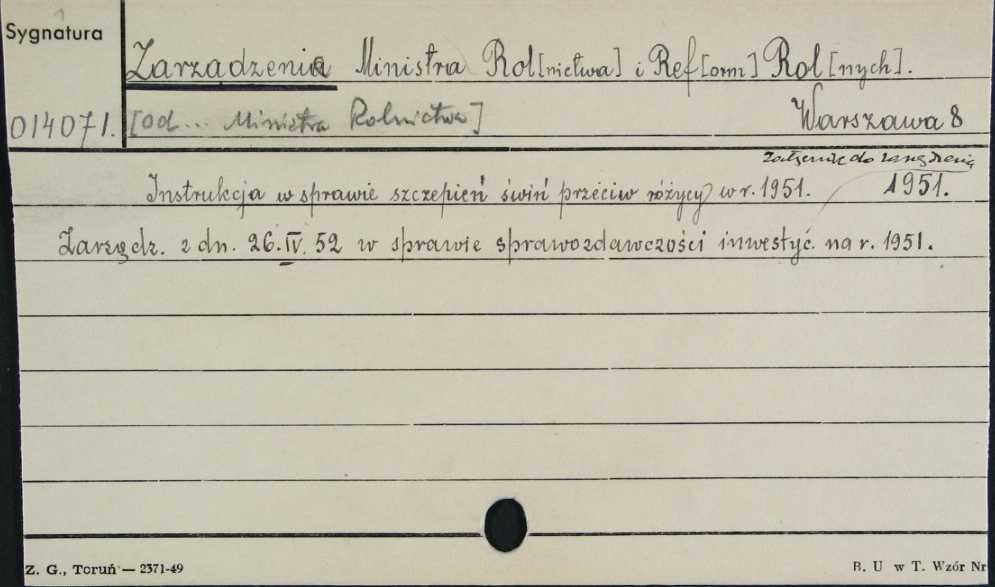 Sygnatura
Zarządzenia Ministra Rol[nictwa] i Ref[orm] Rol[nych].
014071. [od... Ministra Rolnictwa] Warszawa 8
załącznik do zarządzenia
Instrukcja w sprawie szczepień świń przeciw różycy w r. 1951. 1951.
Zarządz. z dn. 26.IV. 52 w sprawie sprawozdawczości inwestyc. na r. 1951.
Z. G., Toruń — 2371-49 B. U w T. Wzór Nr